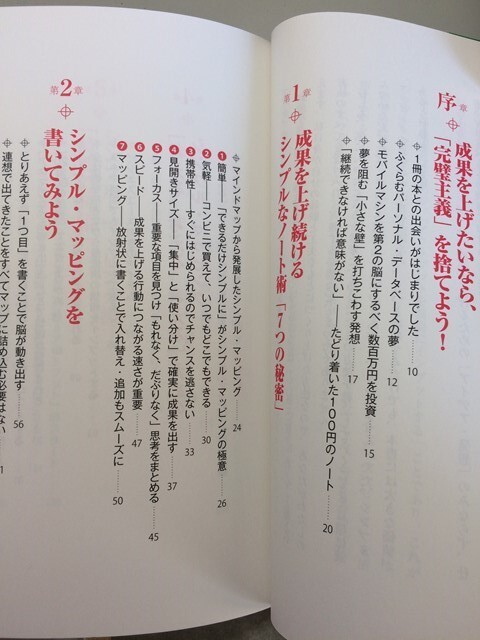 序章
成果を上げたいなら、
「完璧主義」を捨てよう!
1冊の本との出会いがはじまりでした……10
ふくらむパーソナル・データベースの夢……12
モバイルマシンを第2の脳にするべく数百万円を投資……15
夢を阻む「小さな壁」を打ちこわす発想……17
「継続できなければ意味がない」——たどり着いた100円のノート……20
第1章
成果を上げ続ける
シンプルなノート術「7つの秘密」
マインドマップから発展したシンプル・マッピング……24
1 簡単——「できるだけシンプルに」がシンプル・マッピングの極意……26
2 気軽——コンビニで買えて、いつでもどこでもできる……30
3 携帯性——すぐにはじめられるのでチャンスを逃さない……33
4 見開きサイズ——「集中」と「使い分け」で確実に成果を出す……37
5 フォーカス——重要な項目を見つけ「もれなく、だぶりなく」思考をまとめる……45
6 スピード——成果を上げる行動につながる速さが重要……47
7 マッピング——放射状に書くことで入れ替え・追加もスムーズに……50
第2章
シンプル・マッピングを
書いてみよう
とりあえず「1つ目」を書くことで脳が動き出す……56
連想で出てきたことをすべてマップに詰め込む必要はない